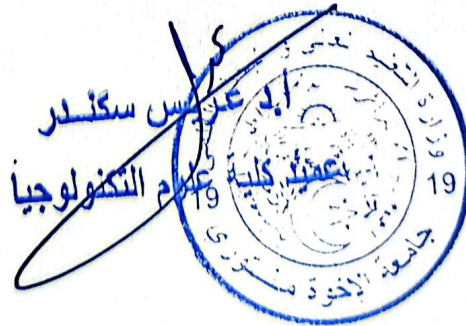 أ.د عرابس سكندر
عميد كلية علوم التكنولوجيا
وزارة التعليم العالي و
19 19
19
جامعة الإخوة منتوري